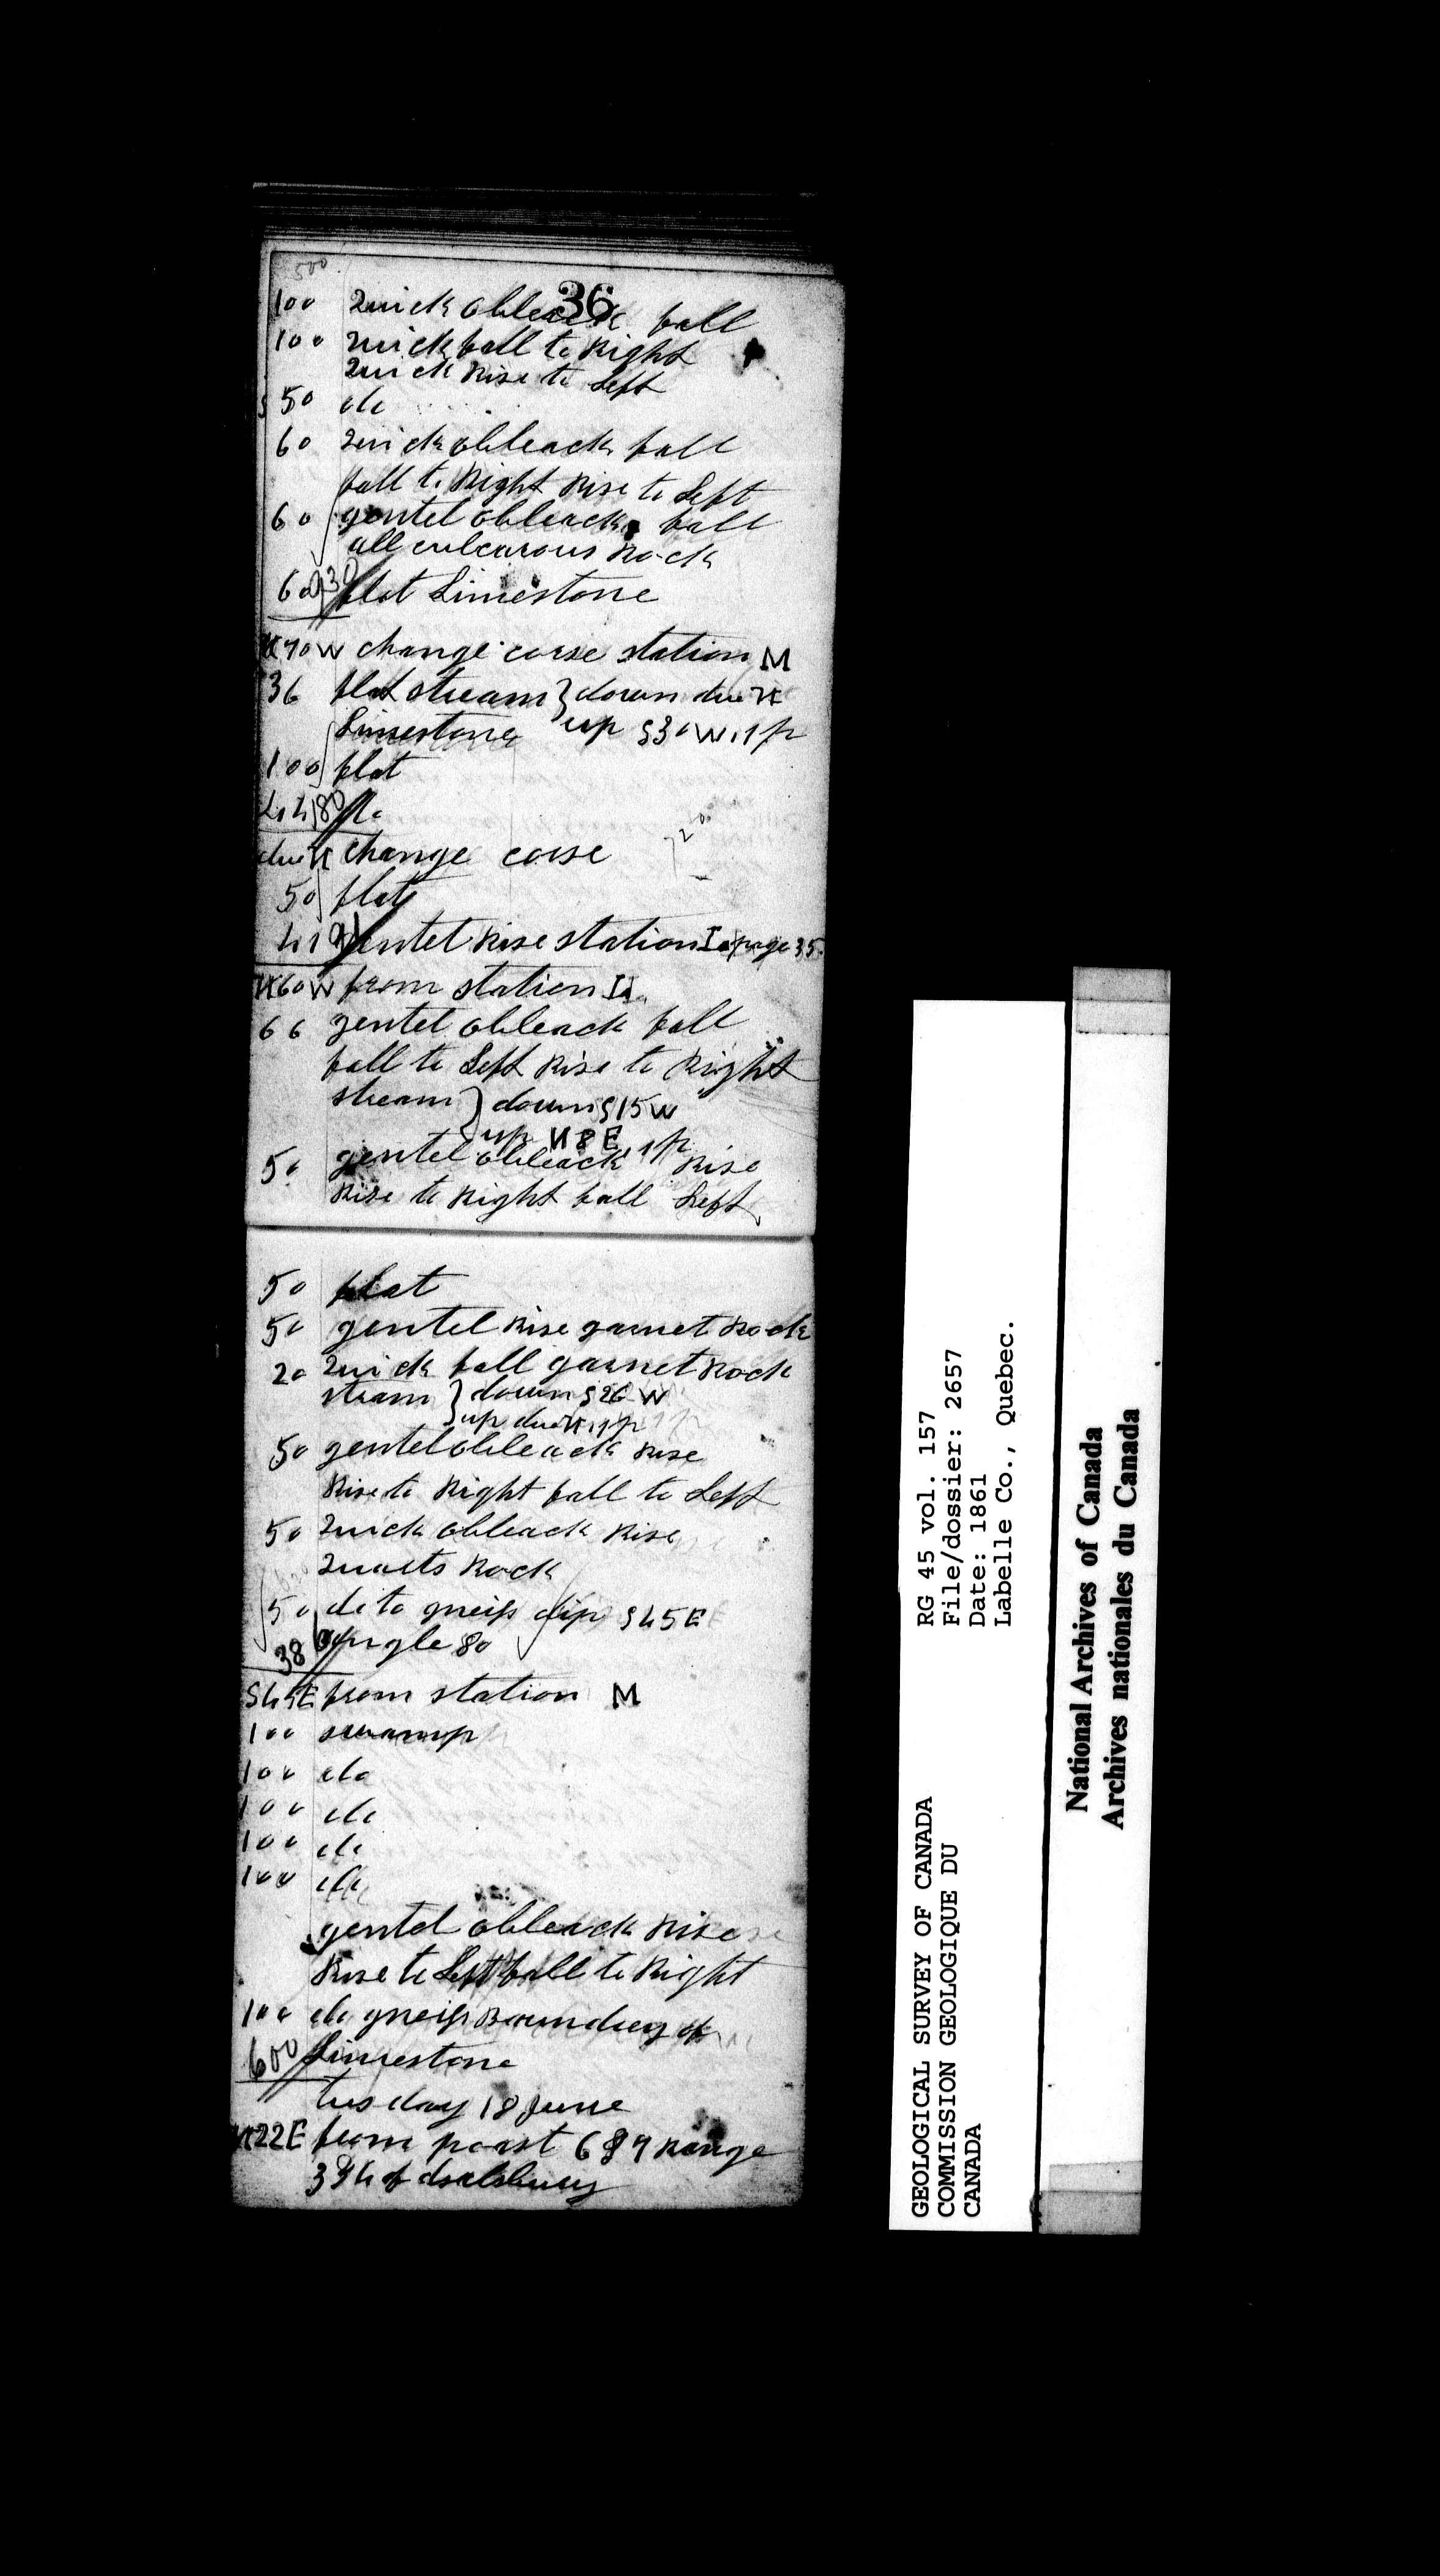 500
36
100 quick obleack fall
100 quick fall to Right
quick Rise to Left
50 do
60 quick obleack fall
fall to Right Rise to Left
60 gentel obleack fall
all culcarous Rock
60 930 flat Limestone
N70W change corse station M
36 flat stream } down due N
Limestone up S30W.1p
100 flat
44 180 do
720
due N change corse
50 flat
41 91 gentel Rise station I page 35
N60W from station
66 gentel obleack fall
fall to Left Rise to Right
stream } down S15W
up N8E 1p
50 gentel obleack Rise
Rise to Right fall Left
50 flat
50 gentel Rise garnet Rock
20 quick fall garnet Rock
stream } down S26W
up due N.1p
50 gentel obleack Rise
Rise to Right fall to Left
50 quick obleack Rise
quarts Rock
50 dito gneiss dip S45E
angle 80
S45E from station M
100 swamp
100 do
100 do
100 do
100 do
gentel obleack Rise
Rise to Left fall to Right
100 do gneiss Boundrey of
600 Limestone
tusday 18 June
N22E from poast 6 & 7 Range
3 & 4 of dsalsbury
RG 45 vol. 157
File/dossier: 2657
Date: 1861
Labelle Co., Quebec.
GEOLOGICAL SURVEY OF CANADA
COMMISSION GEOLOGIQUE DU
CANADA
National Archives of Canada
Archives nationales du Canada